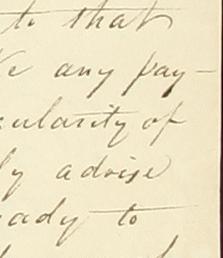 to that
ke any pay-
cularity of
ly advise
eady to